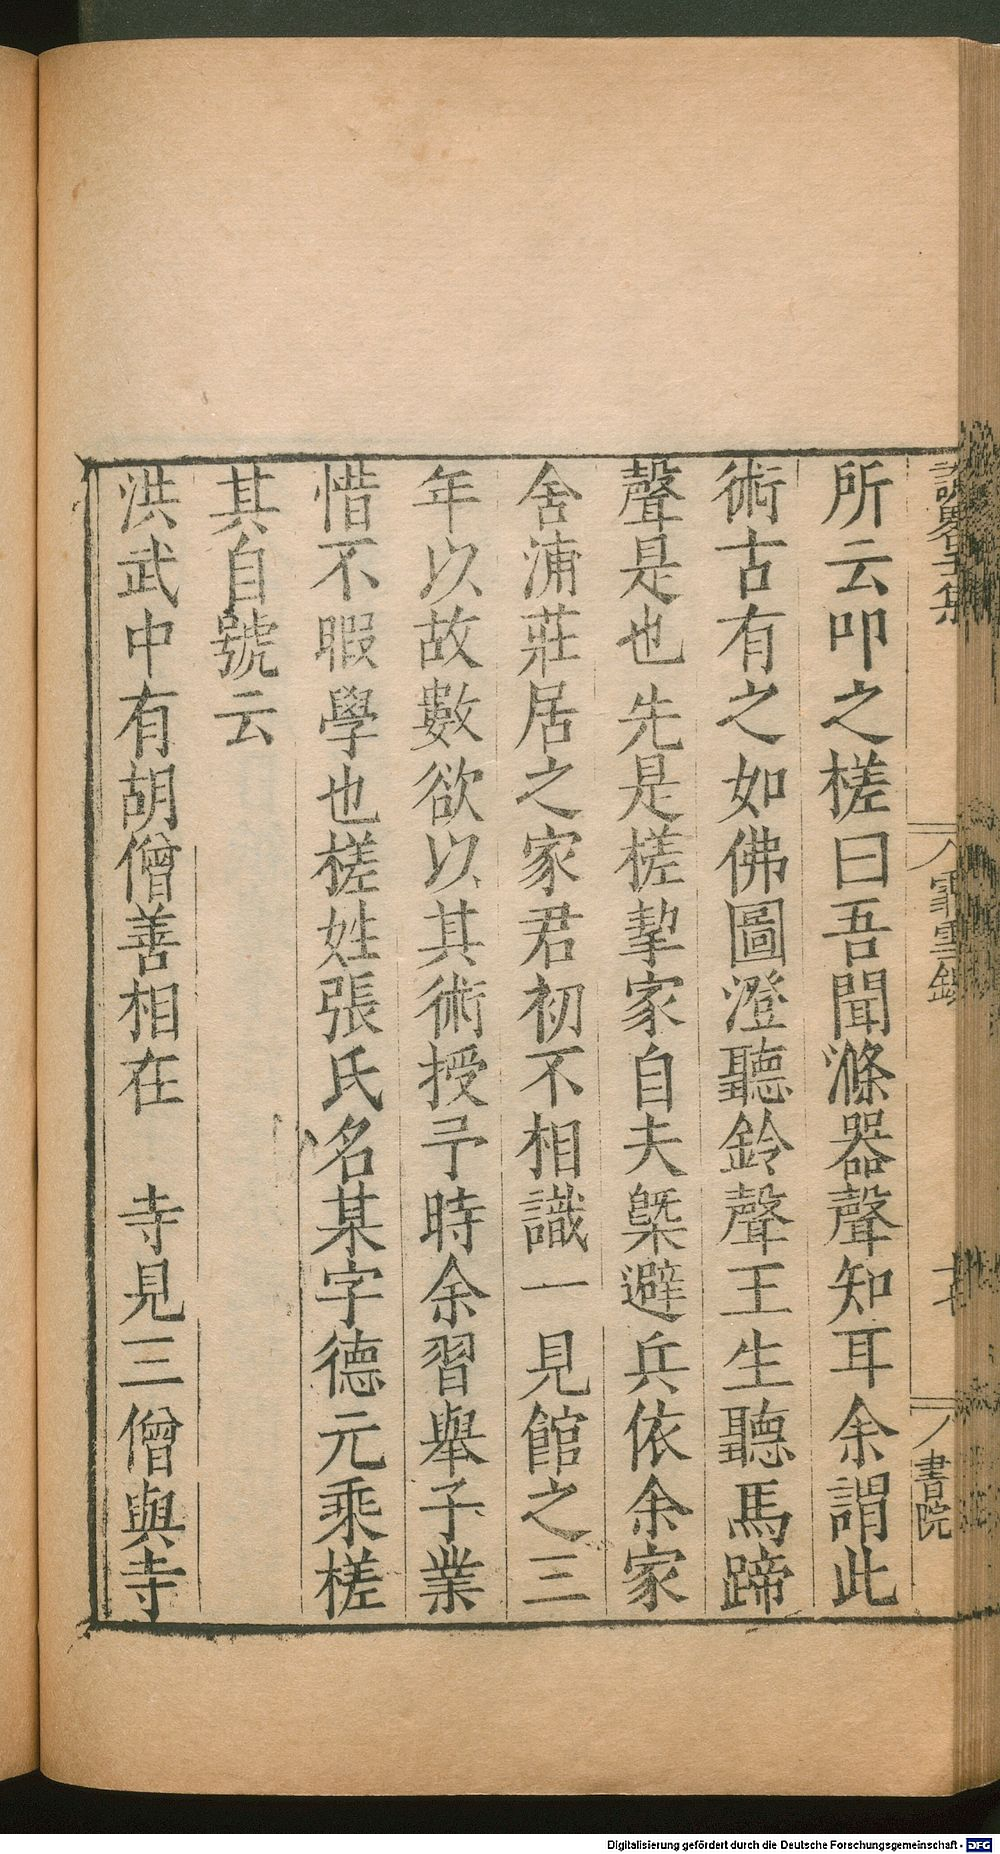 所云叩之槎曰吾聞滌器聲知耳余謂此
術古有之如佛圖澄聽鈴聲王生聽馬蹄
聲是也先是槎挈家自夫槩避兵依余家
舍浦莊居之家君初不相識一見館之三
年以故數欲以其術授予時余習舉子業
惜不暇學也槎姓張氏名某字德元乘槎
其自號云
洪武中有胡僧善相在 寺見三僧與寺
書院
Digitalisierung gefördert durch die Deutsche Forschungsgemeinschaft - DFG